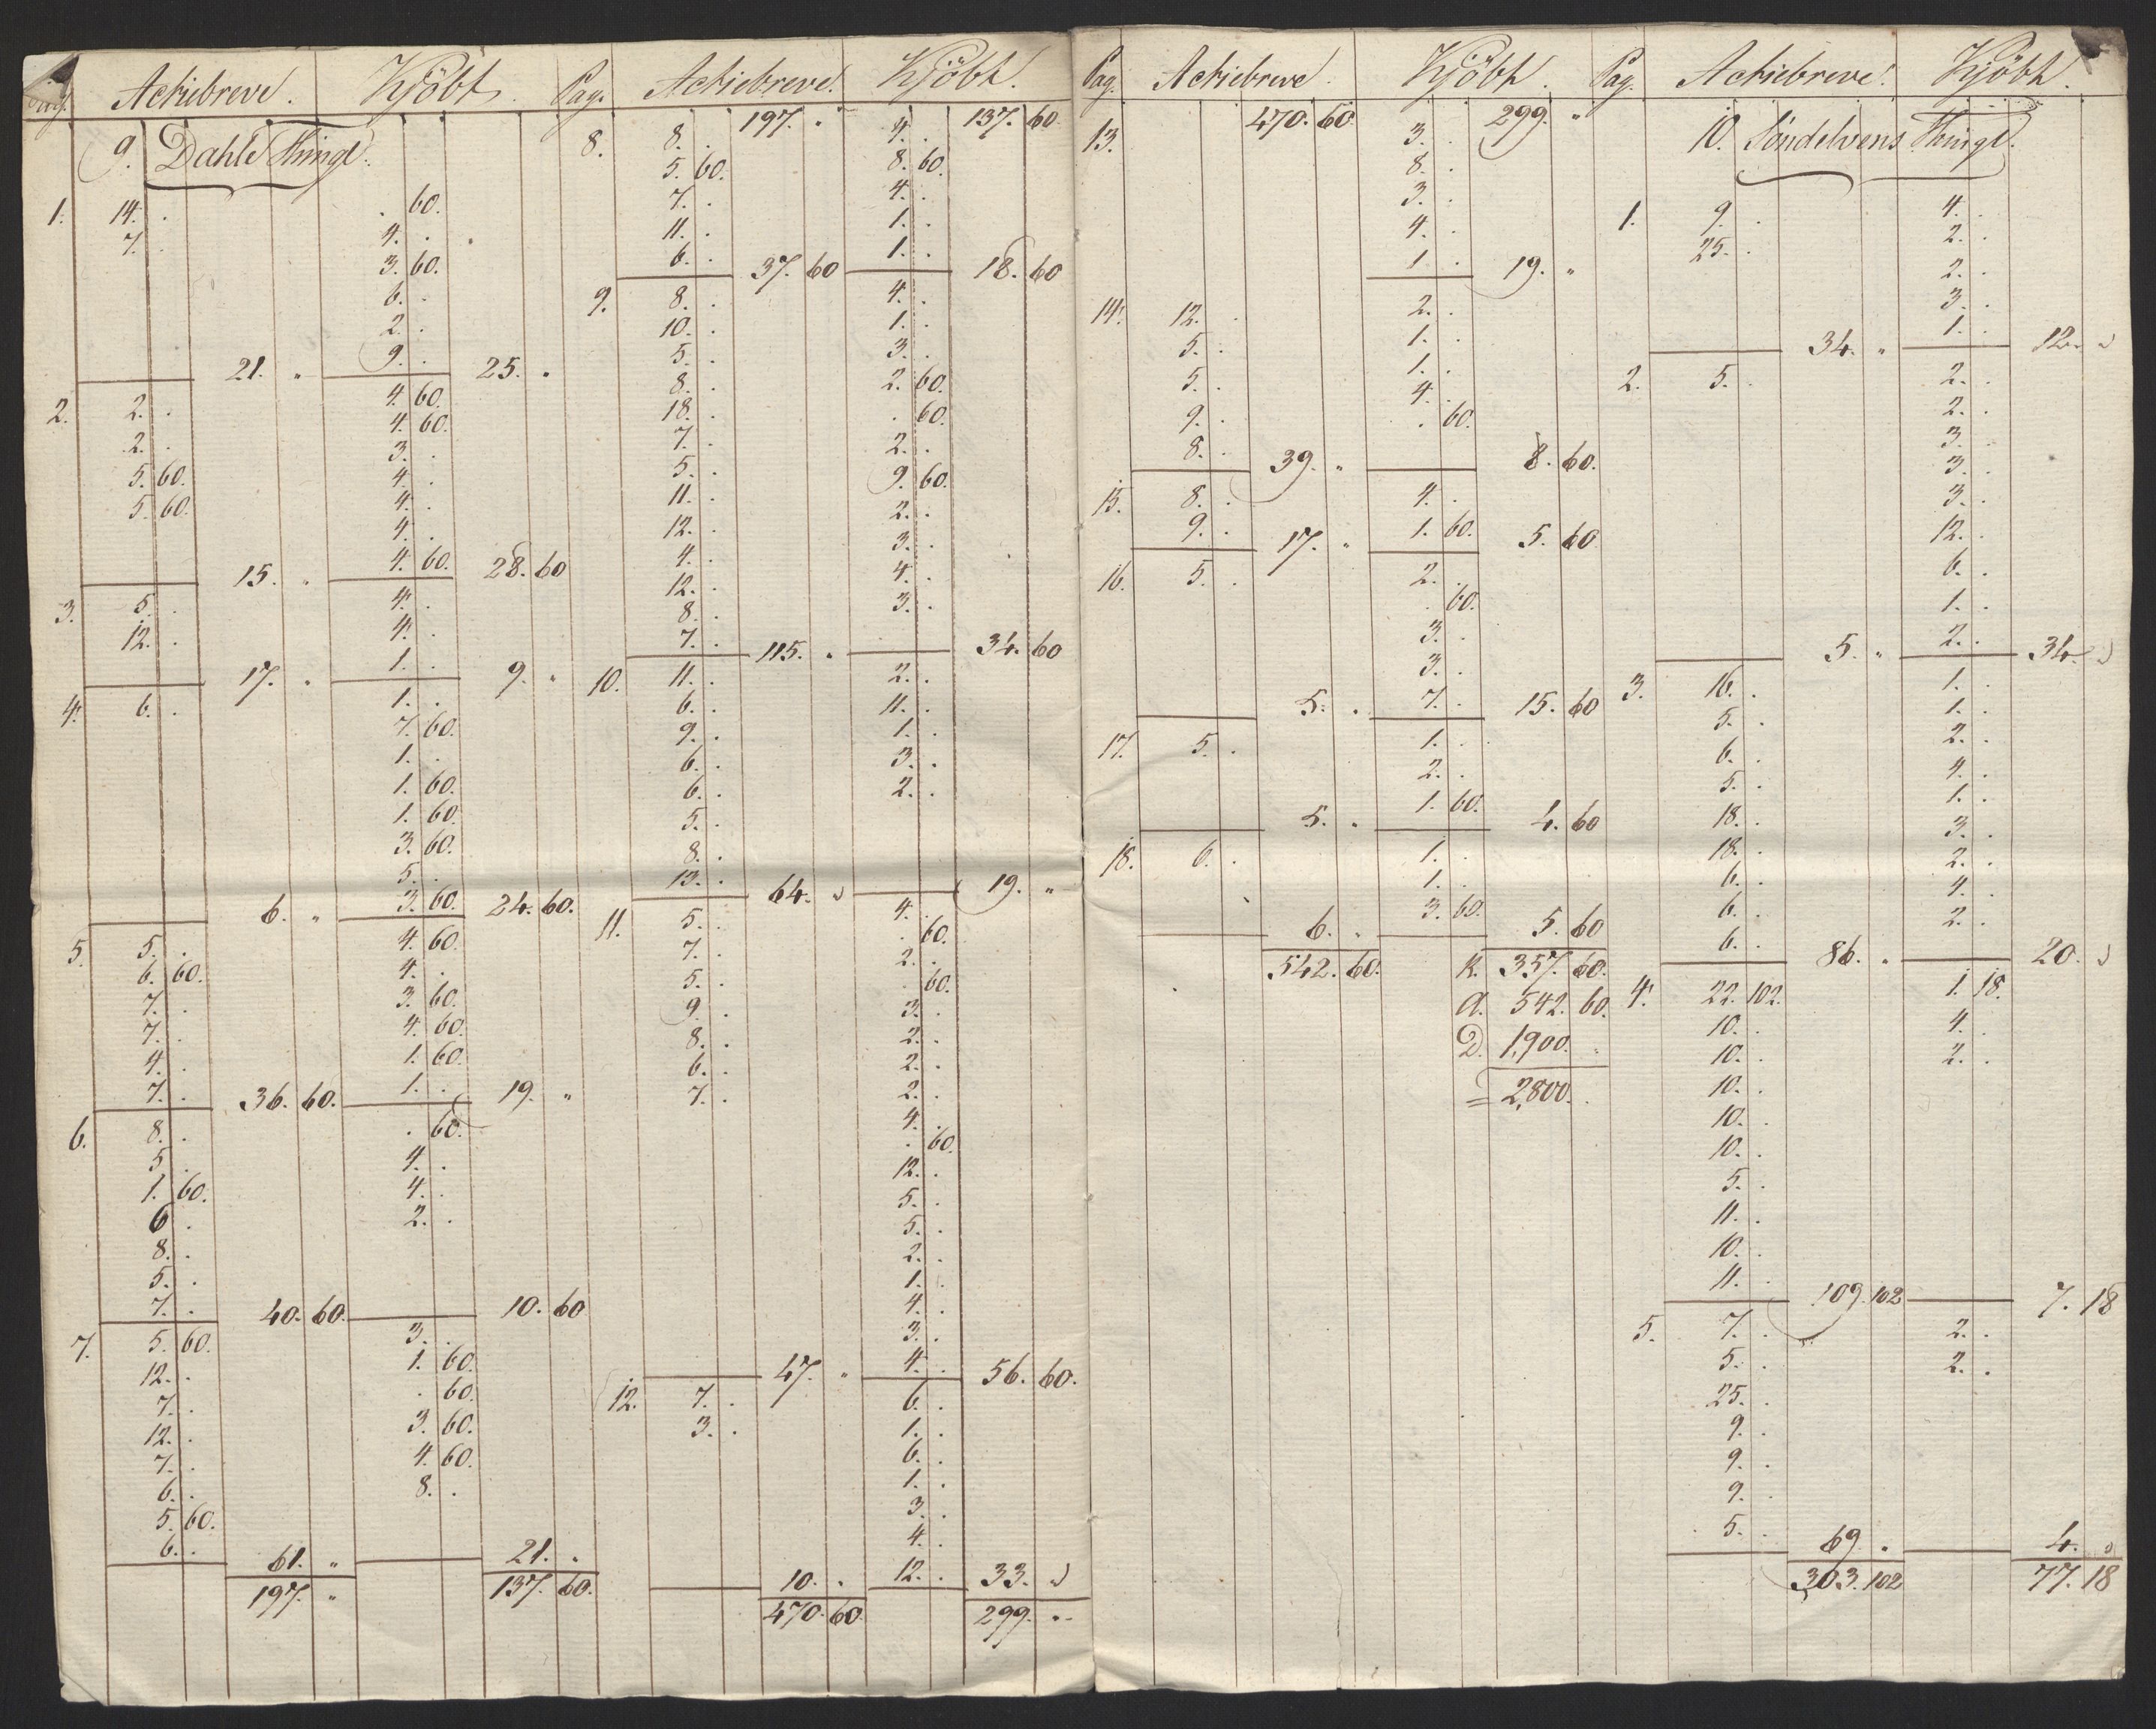 Pag. Actiebreve. Kjöbt.
9. Dahle Thingl.
1. 14. . . 60.
7. . 4. .
3. 60.
6. .
2. .
21. " 9. . 25. "
2. 2. . 4. 60.
2. . 4. 60.
5. 60. 3. .
5. 60. 4. .
4. .
4. .
15. " 4. 60. 28. 60
3. 5. . 4. .
12. . 4. .
17. " 1. . 9. "
4. 6. . 1. .
7. 60.
1. .
1. 60.
1. 60.
3. 60.
5. .
6. " 3. 60. 24. 60.
5. 5. . 4. 60.
6. 60. 4. .
7. . 3. 60.
7. . 4. 60.
4. . 1. 60.
7. . 36. 60. 1. . 19. "
6. 8. . . 60.
5. . 4. .
1. 60. 4. .
6 . 2. .
8. .
5. .
7. . 40. 60. 10. 60
7. 5. 60. 3. .
12. . 1. 60.
7. . . 60.
12. . 3. 60.
7. . 4. 60.
6. . 8. .
5. 60.
6. . 61. " 21. "
197. " 137. 60.
Pag. Actiebreve. Kjöbt.
197. " 137. 60.
8. 8. . 4. .
5. 60. 8. 60.
7. . 4. .
11. . 1. .
6. . 37. 60 1. . 18. 60
9. 8. . 4. .
10. . 1. .
5. . 3. .
8. . 2. 60.
18. . . 60.
7. . 2. .
5. . 9. 60.
11. . 2. .
12. . 3. .
4. . 4. .
12. . 3. .
8. .
7. . 115. " 34. 60
10. 11. . 2. .
6. . 11. .
9. . 1. .
6. . 3. .
6. . 2. .
5. .
8. .
13. . 64. " 19. "
11. 5. . 4. .
7. . . 60.
5. . 2. .
9. . . 60.
8. . 3. .
6. . 2. .
7. . 2. .
2. .
4. .
. 60.
12. .
5. .
5. .
2. .
1. .
4. .
3. .
47. " 4. . 56. 60.
12. 7. . 6. .
3. . 1. .
6. .
1. .
3. .
4. .
10. " 12. . 33. "
470. 60 299. "
Pag. Actiebreve. Kjöbt.
470. 60. 299. "
13. 3. .
8. .
3. .
4. .
1. . 19. "
14. 12. . 2. .
5. . 1. .
5. . 1. .
9. . 4. .
8. . 39. " . 60. 8. 60.
15. 8. . 4. .
9. . 17. " 1. 60. 5. 60
16. 5. . 2. .
. 60.
3. .
3. .
5. " 7. . 15. 60
17. 5. . 1. .
2. .
5. " 1. 60. 4. 60
18. 6. . 1. .
1. .
6. " 3. 60. 5. 60
542. 60. K. 357. 60.
A. 542. 60.
D. 1,900. "
= 2,800. .
Pag. Actiebreve. Kjöbt.
10. Söndelvens Thingl.
1. 9. . 4. .
25. . 2. .
2. .
3. .
34. " 1. . 12. "
2. 5. . 2. .
2. .
3. .
3. .
3. .
12. .
6. .
1. .
5. " 2. . 34. "
3. 16. . 1. .
5. . 1. .
6. . 2. .
5. . 4. .
18. . 1. .
18. . 3. .
6. . 2. .
6. . 4. .
6. . 86. " 2. . 20. "
4. 22. 102. 1. 18.
10. . 4. .
10. . 2. .
10. .
10. .
10. .
5. .
11. .
10. .
11. . 109. 102 7. 18
5. 7. . 2. .
5. . 2. .
25. .
9. .
9. .
9. .
5. . 69. " 4. "
303. 102 77. 18